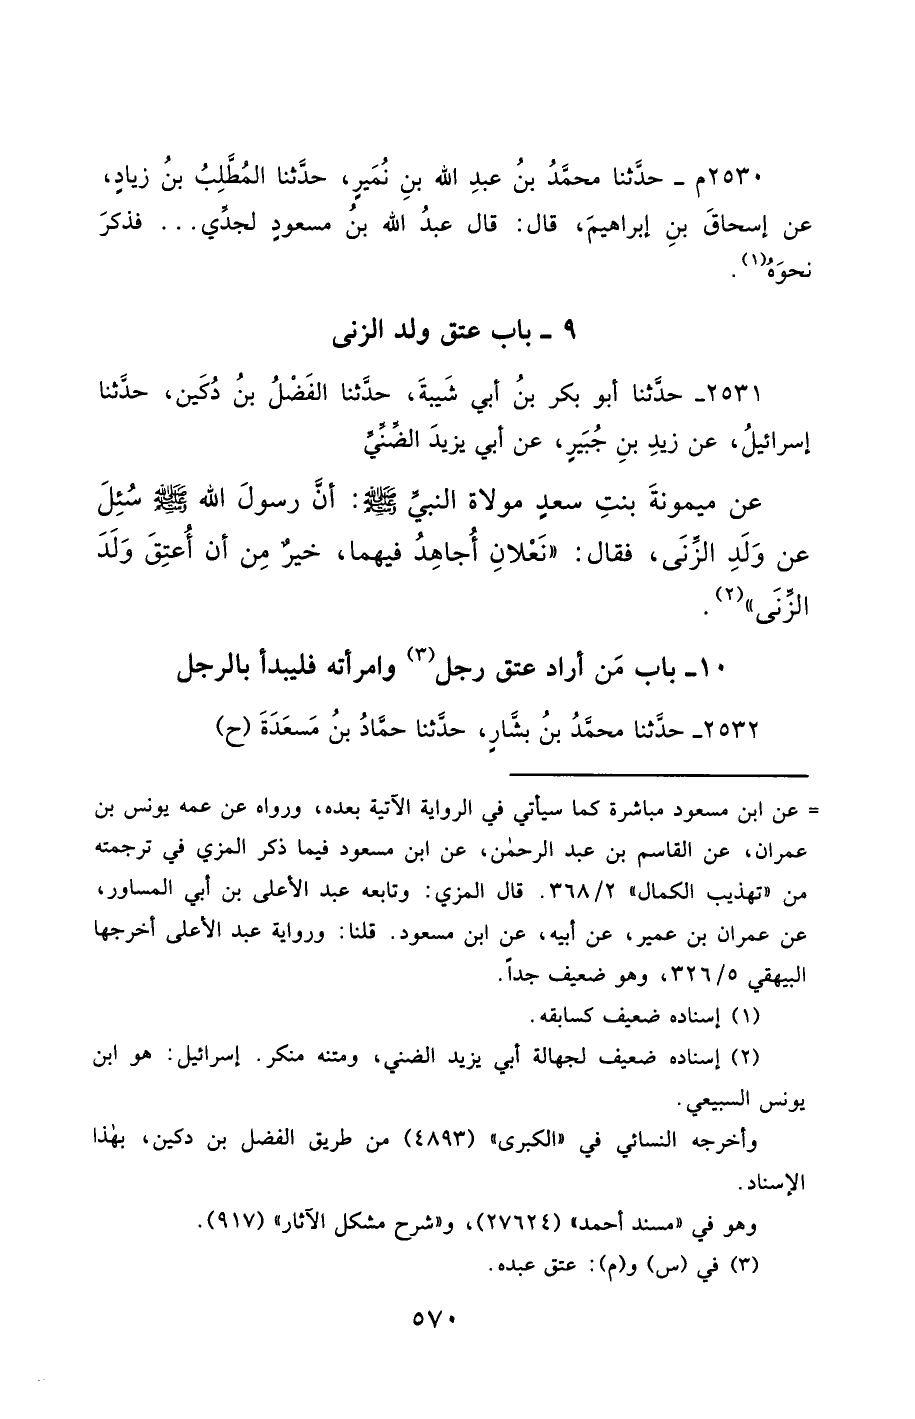 ٢٥٣٠م ـ حدَّثنا محمَّدُ بنُ عبدِ الله بنِ نُمَيرٍ، حدَّثنا المُطَّلِبُ بنُ زيادٍ،
عن إسحاقَ بنِ إبراهيمَ، قال: قال عبدُ الله بنُ مسعودٍ لجدِّي... فذكرَ
نحوَهُ(١).
٩ ـ باب عتق ولد الزنى
٢٥٣١ـ حدَّثنا أبو بكر بنُ أبي شَيبةَ، حدَّثنا الفَضْلُ بنُ دُكَين، حدَّثنا
إسرائيلُ، عن زيدِ بنِ جُبَيرٍ، عن أبي يزيدَ الضِّنِّيِّ
عن ميمونةَ بنتِ سعدٍ مولاة النبيِّ ﷺ: أنَّ رسولَ الله ﷺ سُئِلَ
عن وَلَدِ الزِّنَى، فقال: «نَعْلانِ أُجاهِدُ فيهما، خيرٌ مِن أن أُعتِقَ وَلَدَ
الزِّنَى»(٢).
١٠ـ باب مَن أراد عتق رجل(٣) وامرأته فليبدأ بالرجل
٢٥٣٢ـ حدَّثنا محمَّدُ بنُ بشَّارٍ، حدَّثنا حمَّادُ بنُ مَسعَدَةَ (ح)
= عن ابن مسعود مباشرة كما سيأتي في الرواية الآتية بعده، ورواه عن عمه يونس بن
عمران، عن القاسم بن عبد الرحمٰن، عن ابن مسعود فيما ذكر المزي في ترجمته
من «تهذيب الكمال» ٣٦٨/٢. قال المزي: وتابعه عبد الأعلى بن أبي المساور،
عن عمران بن عمير، عن أبيه، عن ابن مسعود. قلنا: ورواية عبد الأعلى أخرجها
البيهقي ٣٢٦/٥، وهو ضعيف جداً.
(١) إسناده ضعيف كسابقه.
(٢) إسناده ضعيف لجهالة أبي يزيد الضني، ومتنه منكر. إسرائيل: هو ابن
يونس السبيعي.
وأخرجه النسائي في «الكبرى» (٤٨٩٣) من طريق الفضل بن دكين، بهٰذا
الإسناد.
وهو في «مسند أحمد» (٢٧٦٢٤)، و«شرح مشكل الآثار» (٩١٧).
(٣) في (س) و(م): عتق عبده.
٥٧٠